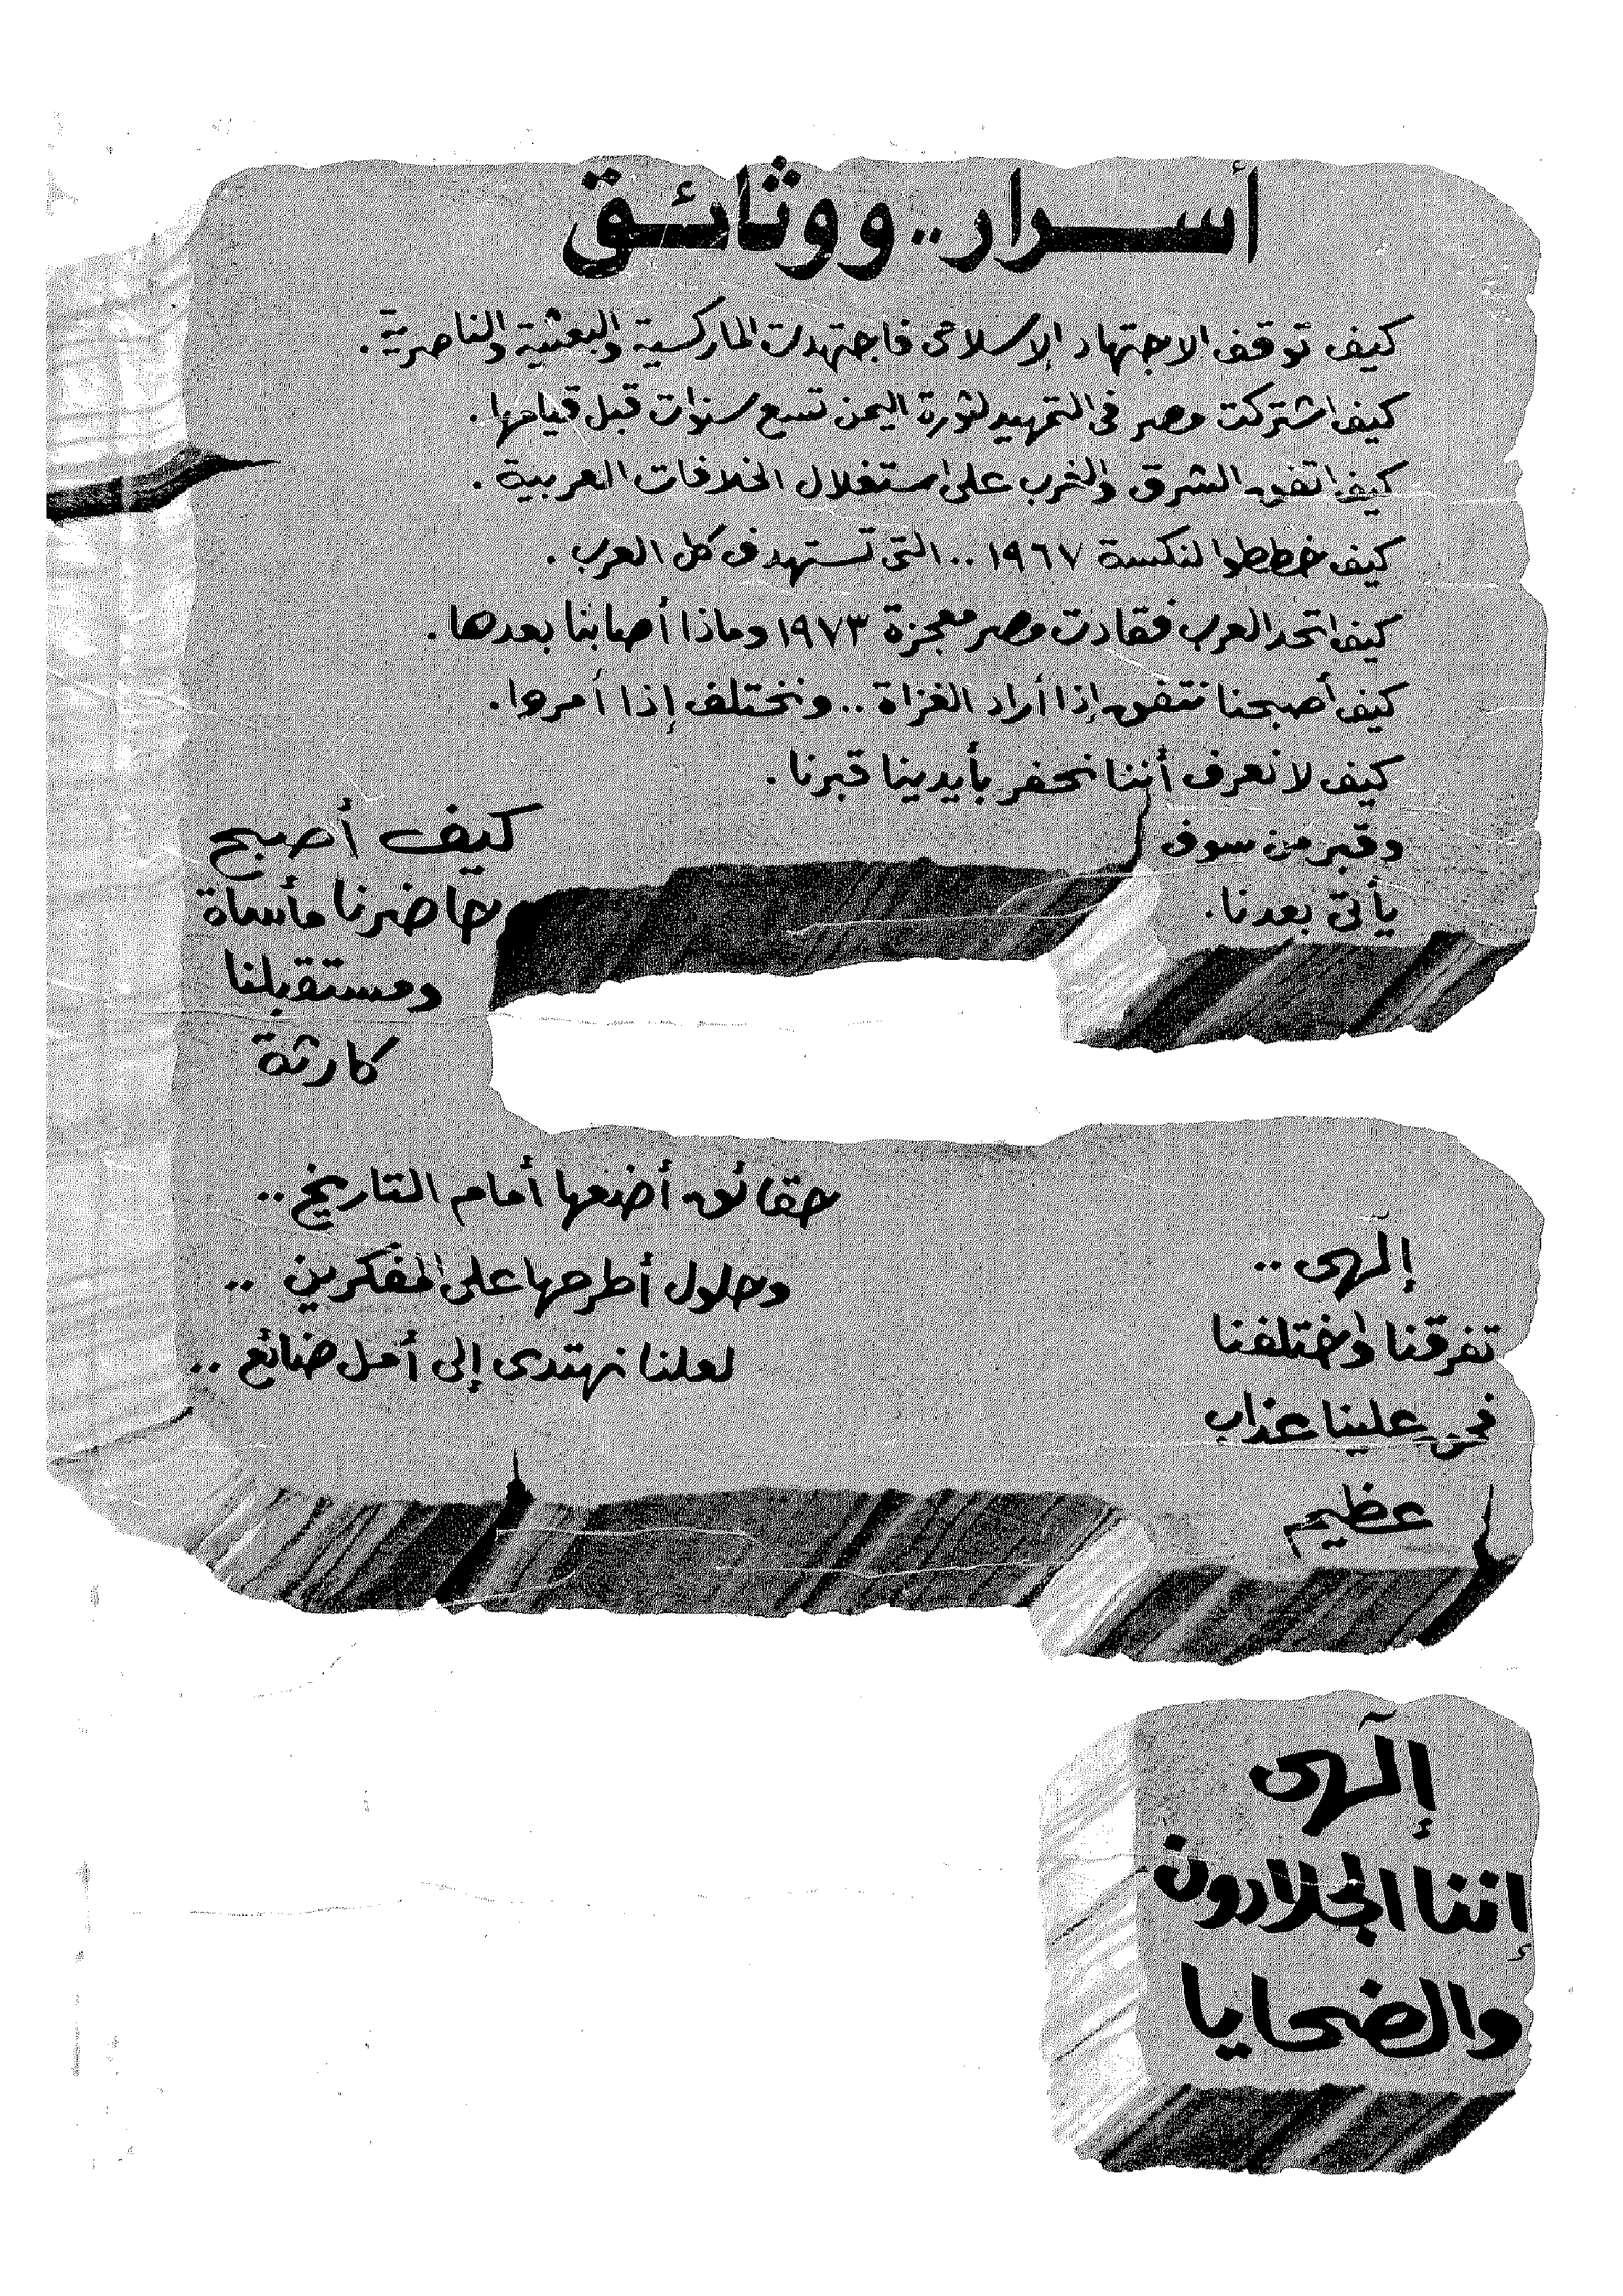 أسرار.. ووثائق
كيف توقف الاجتهاد الإسلامى فاجتهدت الماركسية والبعثية والناصرية.
كيف اشتركت مصر فى التمهيد لثورة اليمن تسع سنوات قبل قيامها.
كيف اتفق الشرق والغرب على استغلال الخلافات العربية.
كيف خططوا لنكسة ١٩٦٧.. التى تستهدف كل العرب.
كيف اتحد العرب فقادت مصر معجزة ١٩٧٣ وماذا أصابنا بعدها.
كيف أصبحنا نتفق إذا أراد الغزاة.. ونختلف إذا أمروا.
كيف لا نعرف أننا نحفر بأيدينا قبرنا.
وقبر من سوف
يأتى بعدنا.
كيف أصبح
حاضرنا مأساة
ومستقبلنا
كارثة
حقائق أضعها أمام التاريخ..
وحلول أطرحها على المفكرين..
لعلنا نهتدى إلى أمل ضائع..
إلهى..
تفرقنا واختلفنا
فحق علينا عذاب
عظيم
إلهى
إننا الجلادون
والضحايا